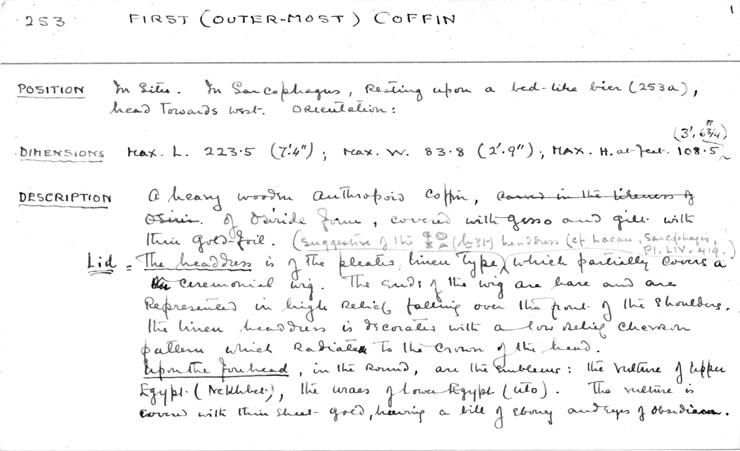 1
253 FIRST (OUTER-MOST) COFFIN
POSITION In Situ. In Sarcophagus, Resting upon a bed-like bier (253a),
head towards west. Orientation:
(3', 6 3/4")
DIMENSIONS Max. L. 223.5 (7'.4"); Max. W. 83.8 (2'.9"); Max. H. at feet. 108.5
DESCRIPTION A heavy wooden anthropoid coffin, carved in the likeness of
Osiris. of Osiride form, covered with gesso and gilt with
thin gold-foil. (Suggestive of the headdress (cf Lacau, Sarcophages,
Pl. LIV. 419.)
Lid = The headdress is of the pleated linen type, which partially covers a
ceremonial wig. The ends of the wig are bare and are
Represented in high relief falling over the front of the shoulders.
The linen headdress is decorated with a low relief chevron
pattern which radiates to the crown of the head.
Upon the forehead, in the round, are the emblems: the vulture of Upper
Egypt (Nekhbet), the uraeus of Lower Egypt (Uto). The vulture is
covered with thin sheet-gold, having a bill of ebony and eyes of obsidian.